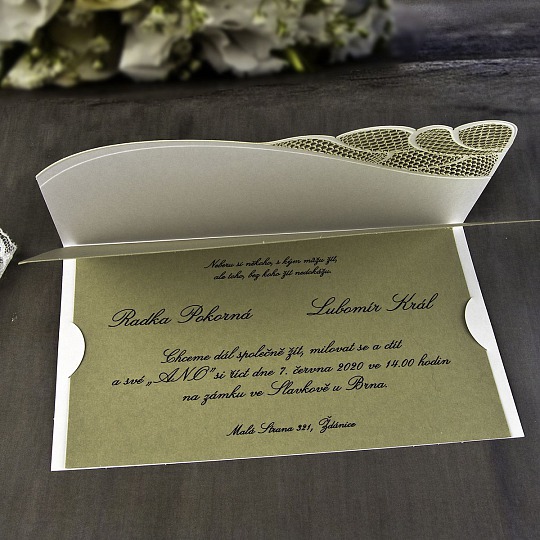 Neberu si někoho, s kým můžu žít,
ale toho, bez koho žít nedokážu.
Radka Pokorná Lubomír Král
Chceme dál společně žít, milovat se a ctít
a své „ANO" si říct dne 7. června 2020 ve 14.00 hodin
na zámku ve Slavkově u Brna.
Malá Strana 321, Ždánice